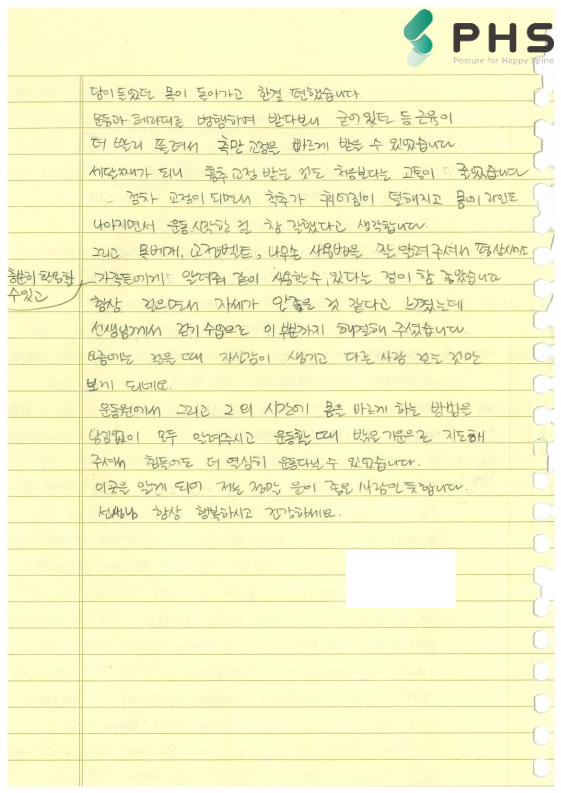 PHS
Posture for Happy Spine
당이 들었던 목이 돌아가고 한결 편했습니다.
운동과 테라피를 병행하여 받다보니 굳어있던 등근육이
더 빨리 풀려서 흉만 교정을 빠르게 받을 수 있었습니다.
세달째가 되니 흉추교정 받는 것도 처음보다는 고통이 줄었습니다
점차 교정이 되면서 척추가 휘어짐이 덜해지고 몸의 라인도
나아지면서 운동 시작한 걸 참 잘했다고 생각합니다.
그리고 목베개, 교정벨트, 나무손 사용법을 잘 알려주셔서 평상시에도
충분히 활용할
수 있고
가족들에게 알려줘 같이 사용할 수 있다는 점이 참 좋았습니다
항상 걸으면서 자세가 안좋을 것 같다고 느꼈는데
선생님께서 걷기 수업으로 이 부분까지 해결해 주셨습니다.
요즘에는 걸을 때 자신감이 생기고 다른 사람 걷는 것만
보게 되네요.
운동원에서 그리고 그 외 시간에 몸을 바르게 하는 방법을
남김없이 모두 알려주시고 운동할 때 밝은 기운으로 지도해
주셔서 힘들어도 더 열심히 운동다닐 수 있었습니다.
이곳을 알게 되어 저는 정말 운이 좋은 사람인 듯합니다.
선생님 항상 행복하시고 건강하세요.